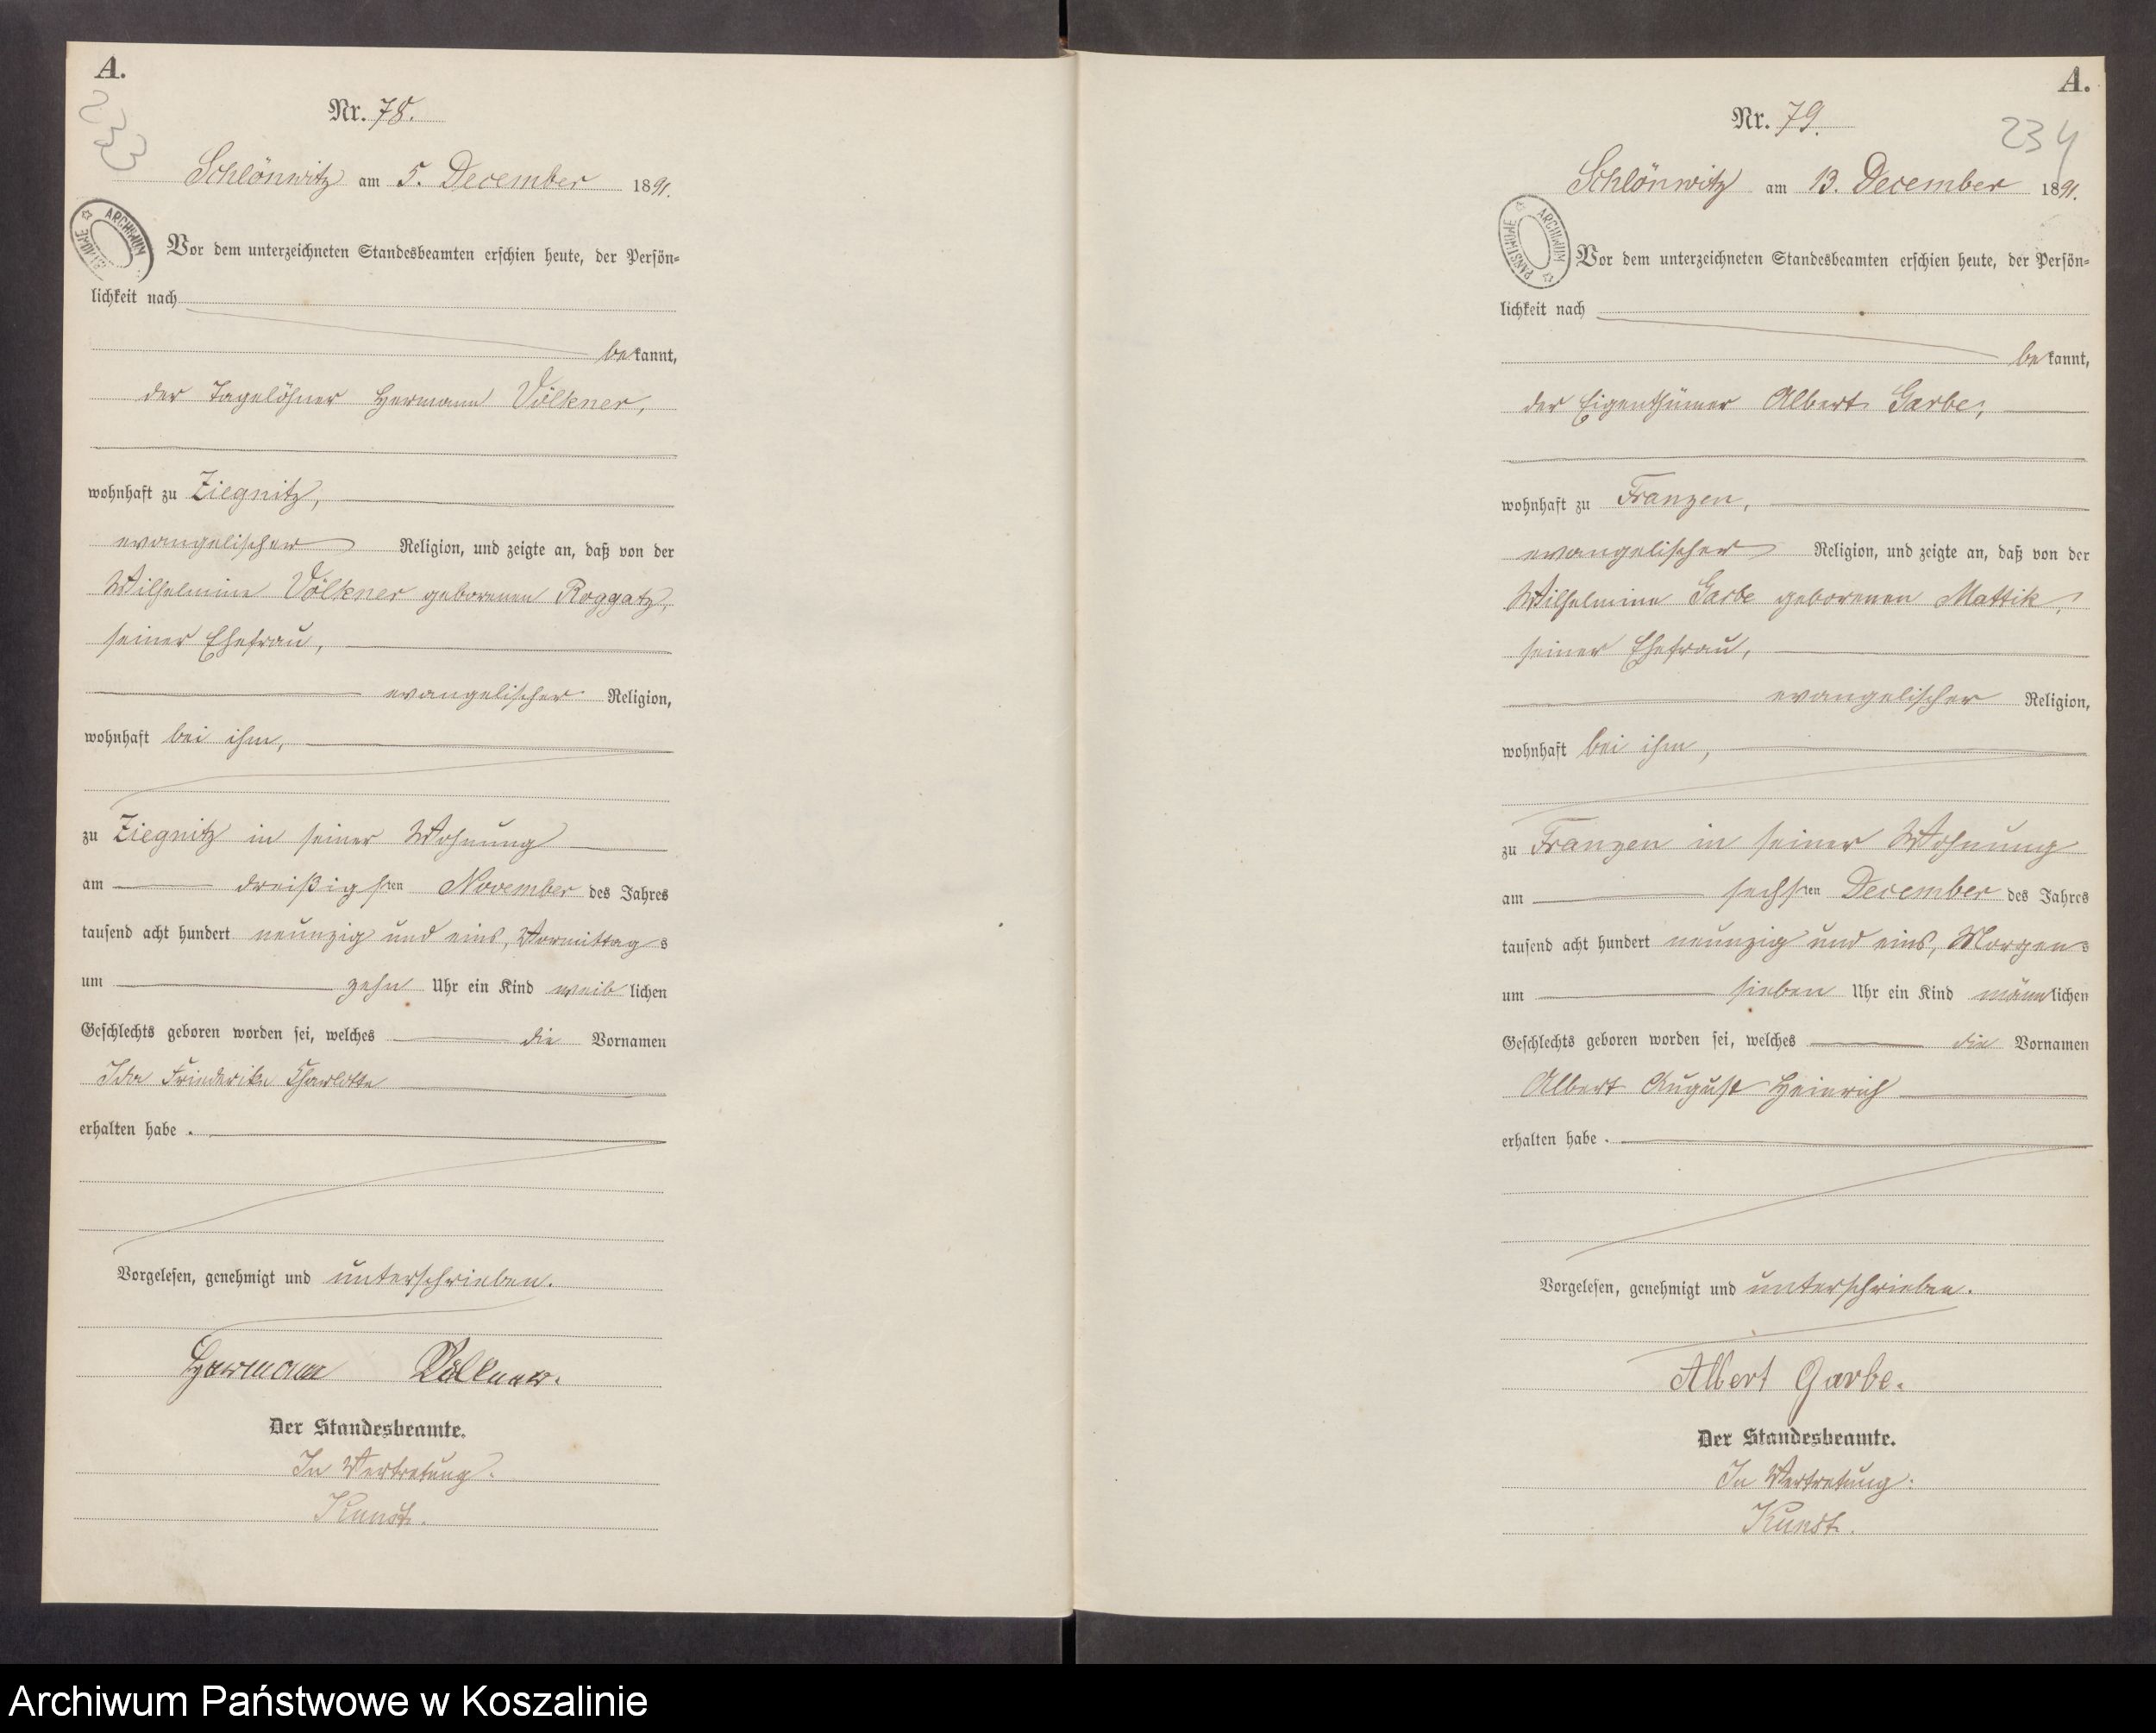 A.
233
Nr. 78.
Schlönwitz am 5. December 1891.
ARCHIWUM
Vor dem unterzeichneten Standesbeamten erschien heute, der Persön-
lichkeit nach
bekannt,
der Tagelöhner Hermann Völkner,
wohnhaft zu Ziegnitz,
evangelischer Religion, und zeigte an, daß von der
Wilhelmine Völkner geborenen Roggatz,
seiner Ehefrau,
evangelischer Religion,
wohnhaft bei ihm,
zu Ziegnitz in seiner Wohnung
am dreißigsten November des Jahres
tausend acht hundert neunzig und eins, Vormittags
um zehn Uhr ein Kind weiblichen
Geschlechts geboren worden sei, welches die Vornamen
Ida Friederike Charlotte
erhalten habe.
Vorgelesen, genehmigt und unterschrieben.
Hermann Völkner.
Der Standesbeamte.
In Vertretung.
Kunst.
A.
234
Nr. 79.
Schlönwitz am 13. December 1891.
ARCHIWUM PAŃSTWOWE
Vor dem unterzeichneten Standesbeamten erschien heute, der Persön-
lichkeit nach
bekannt,
der Eigenthümer Albert Garbe,
wohnhaft zu Franzen,
evangelischer Religion, und zeigte an, daß von der
Wilhelmine Garbe geborenen Mattik,
seiner Ehefrau,
evangelischer Religion,
wohnhaft bei ihm,
zu Franzen in seiner Wohnung
am sechsten December des Jahres
tausend acht hundert neunzig und eins, Morgens
um sieben Uhr ein Kind männlichen
Geschlechts geboren worden sei, welches die Vornamen
Albert August Heinrich
erhalten habe.
Vorgelesen, genehmigt und unterschrieben.
Albert Garbe.
Der Standesbeamte.
In Vertretung:
Kunst.
Archiwum Państwowe w Koszalinie